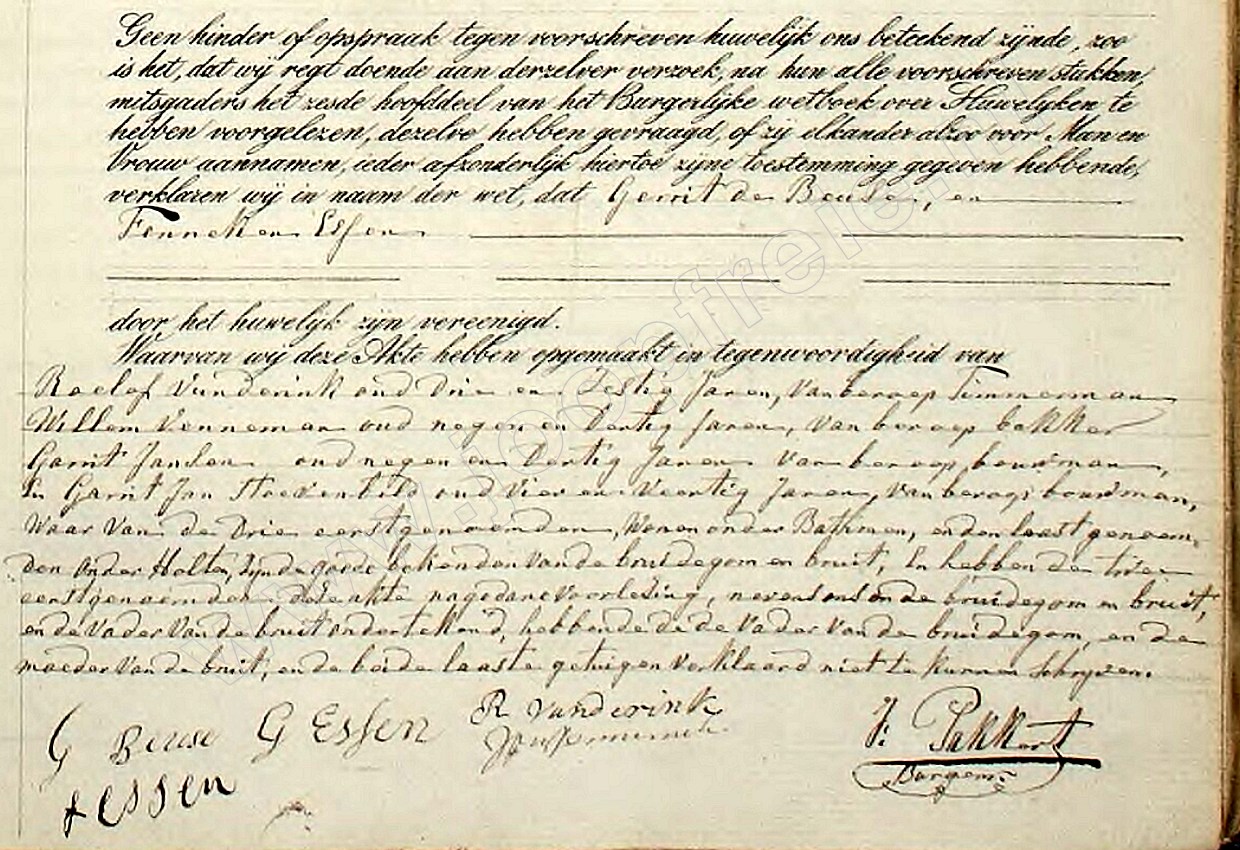 Geen hinder of opspraak tegen voorschreven huwelijk ons beteekend zijnde, zoo
is het, dat wij regt doende aan derzelver verzoek, na hun alle voorschreven stukken,
mitsgaders het zesde hoofddeel van het Burgerlijke wetboek over Huwelijken te
hebben voorgelezen, dezelve hebben gevraagd, of zij elkander alzoo voor Man en
Vrouw aannamen, ieder afzonderlijk hiertoe zijne toestemming gegeven hebbende,
verklaren wij in naam der wet, dat Gerrit de Beuse, en
Fenneken Essen
door het huwelijk zijn vereenigd.
Waarvan wij deze Akte hebben opgemaakt in tegenwoordigheid van
Roelof Vunderink oud Drie en Zestig Jaren, Van beroep Timmerman
Willem Venneman oud negen en Dertig Jaren, Van beroep bakker
Garrit Jansen oud negen en Dertig Jaren Van beroep bouwman,
En Garrit Jan oud Vier en Veertig Jaren, Van beroep bouwman,
Waar Van de Drie eerstgenoemden, Wonen onder Bathmen, en den laast genoem-
den onder Holten, zijnde goede bekenden van de bruidegom en bruit, En hebben de twee
eerstgenoemden deze akte na gedane Voorlesing, nevens ons en de bruidegom en bruit,
en de Vader Van de bruit ondertekend, hebbende de Vader Van de bruidegom, en de
moeder Van de bruit, en de beide laaste getuigen Verklaard niet te kunnen Schrijven.
G Beuse G Essen R Vunderink
J: Pakkert
Burgem:
F Essen